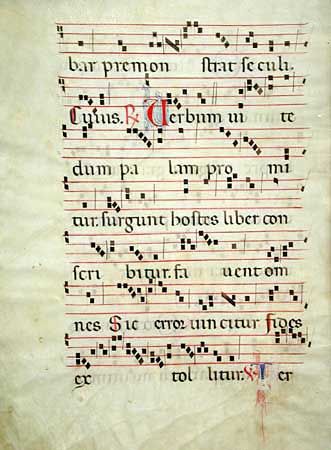 bar premon strat se culi.
Cuius. ℟ Verbum ui te
dum pa lam pro mi
tur. surgunt hostes liber con
scri bitur. fa uent om
nes Sic error uin citur fides
ex tol litur. ℣ Ter